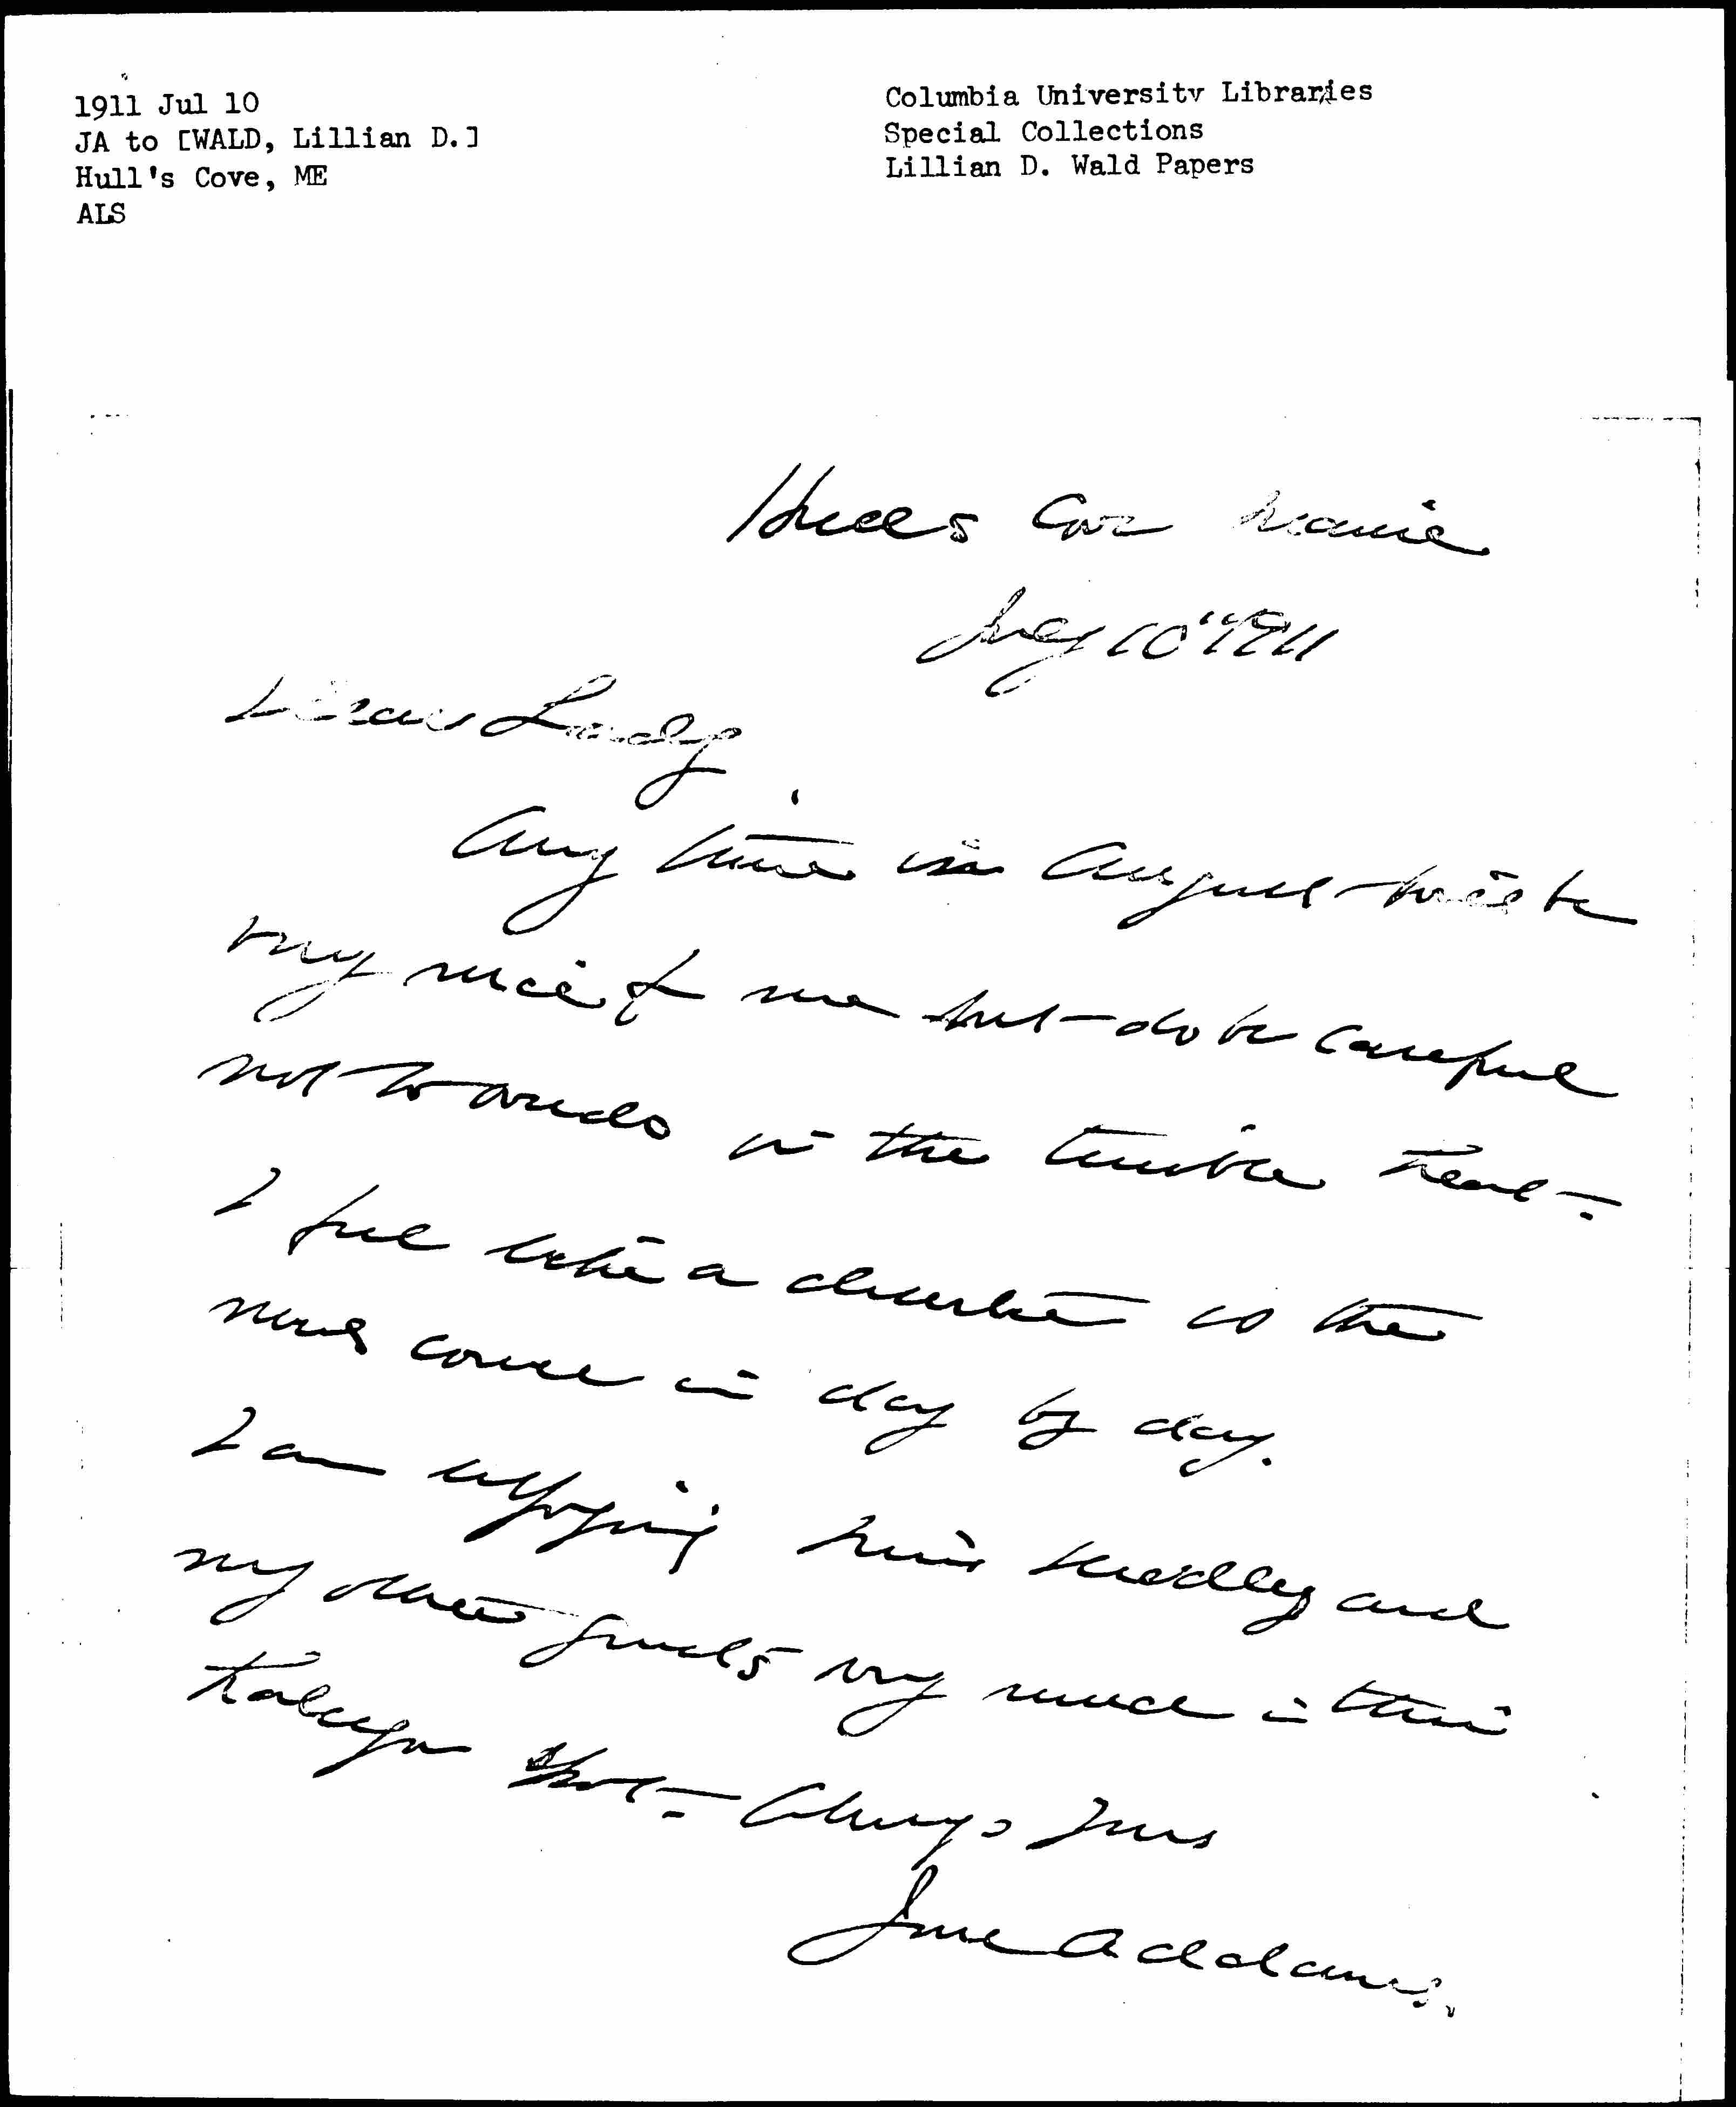 1911 Jul 10
JA to [WALD, Lillian D.]
Hull's Cove, ME
ALS
Columbia University Libraries
Special Collections
Lillian D. Wald Papers
Hulls Cove Maine
July 10" 1911
Dear Lady
Any time in August will be
very nice for me but do be careful
not to overdo in the terrible heat –
I feel like a deserter as the
news comes in day by day.
I am enjoying him hugely and
my sister finds very much in this
spot – Always yours
Jane Addams.